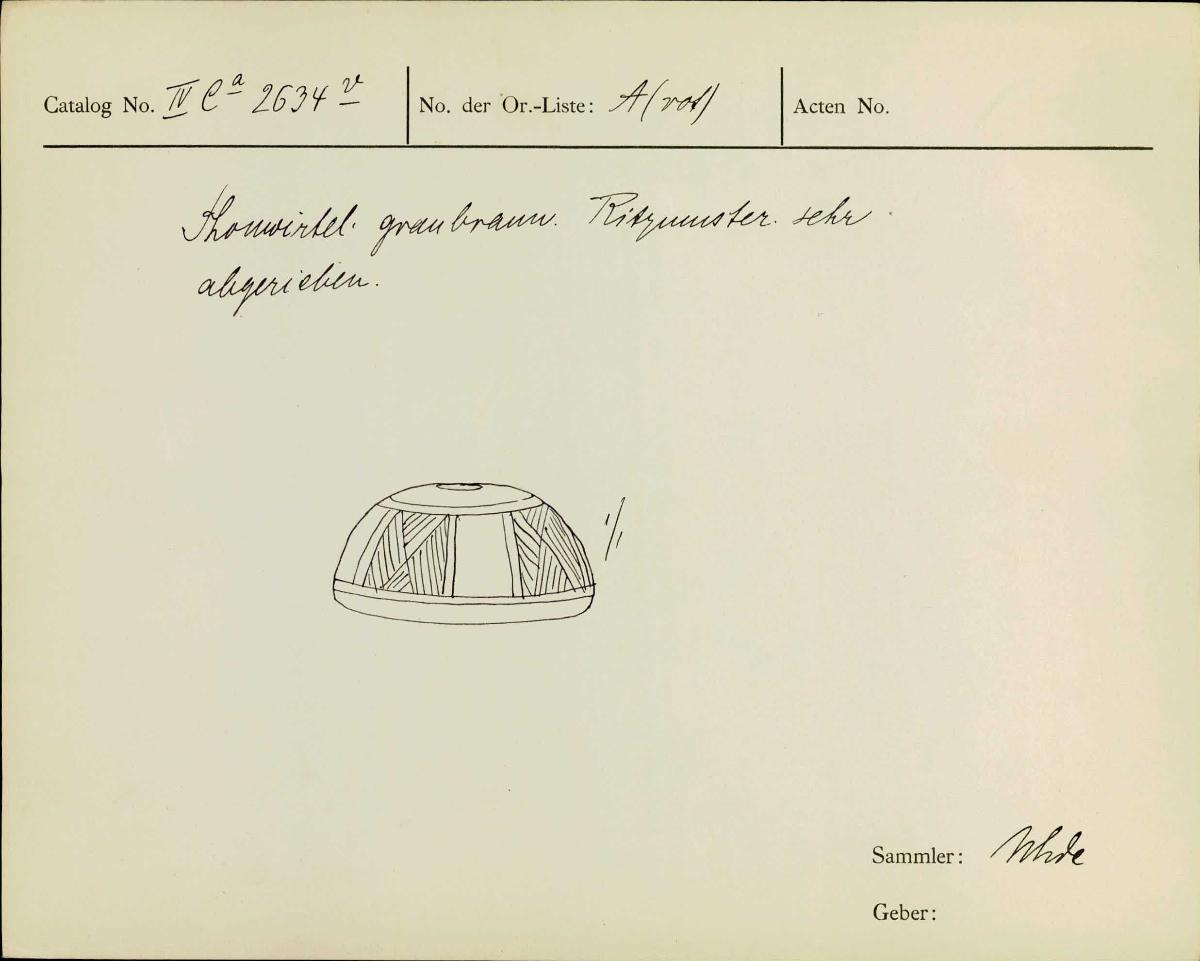 Catalog No. IV Ca 2634 v No. der Or.-Liste: A (rot) Acten No.
Thonwirtel. graubraun. Ritzmuster. sehr
abgerieben.
1/1
Sammler: Uhde
Geber: